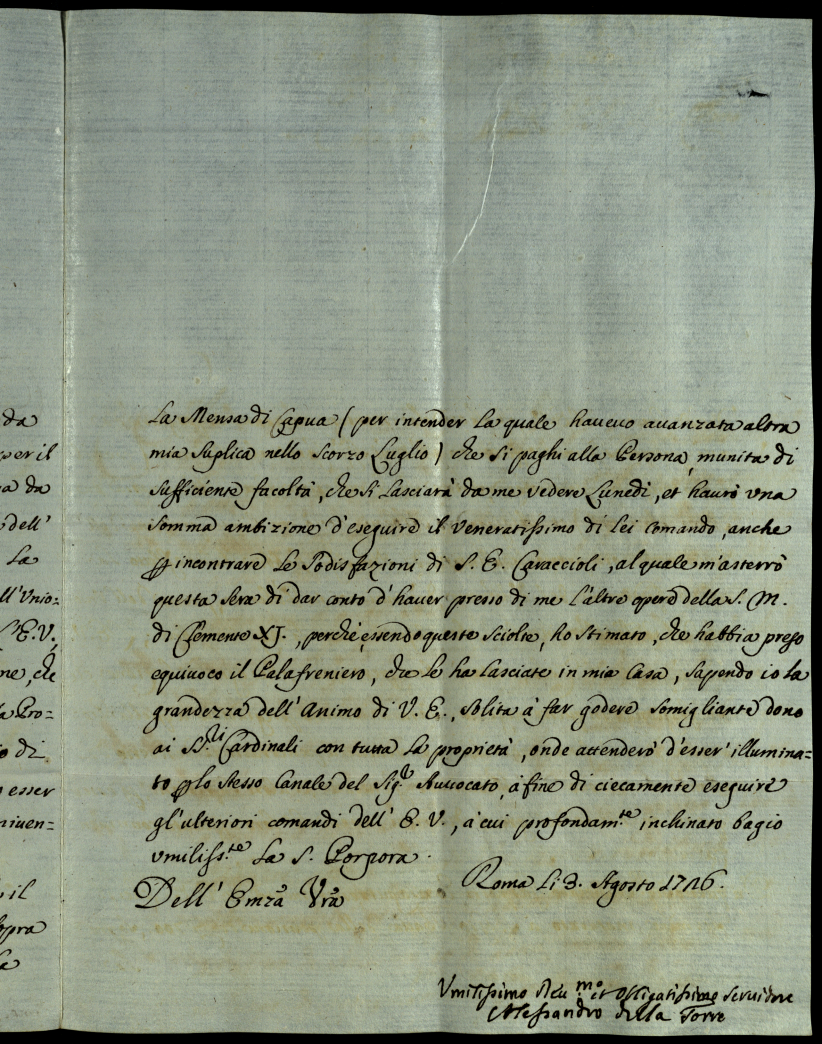 da
per il
a da
dell'
La
ll'Vnio=
S' E. V.
ne, che
la Pro=
o di
esser
niuen=
il
sopra
La
La Mensa di Capua (per intender La quale haueuo auanzata altra
mia suplica nello scorzo Luglio) che si paghi alla Persona munita di
sufficiente facoltà, che si Lasciarà da me vedere Lunedì, et haurò vna
somma ambizione d'eseguire il veneratissimo di lei comando, anche
p incontrare Le sodisfazioni di S. E. Caraccioli, al quale m'asterrò
questa sera di dar conto d'hauer presso di me l'altre opere della S. M.
di Clemente XI., perchè essendo queste sciolte, ho stimato, che habbia preso
equiuoco il Palafreniero, che Le ha Lasciate in mia Casa, sapendo io la
grandezza dell'Animo di V. E., solita à far godere somigliante dono
ai SS.ri Cardinali con tutta La proprietà, onde attenderò d'esser' illumina=
to p lo stesso Canale del Sig.r Auuocato, à fine di ciecamente eseguire
gl'ulteriori comandi dell' E. V., à cui profondam.te inchinato bagio
vmiliss.te La S. Porpora.
Roma li 3. Agosto 1726.
Dell' Emza Vra
Vmilissimo Deu.mo et Obligatissimo Seruidore
Alessandro della Torre